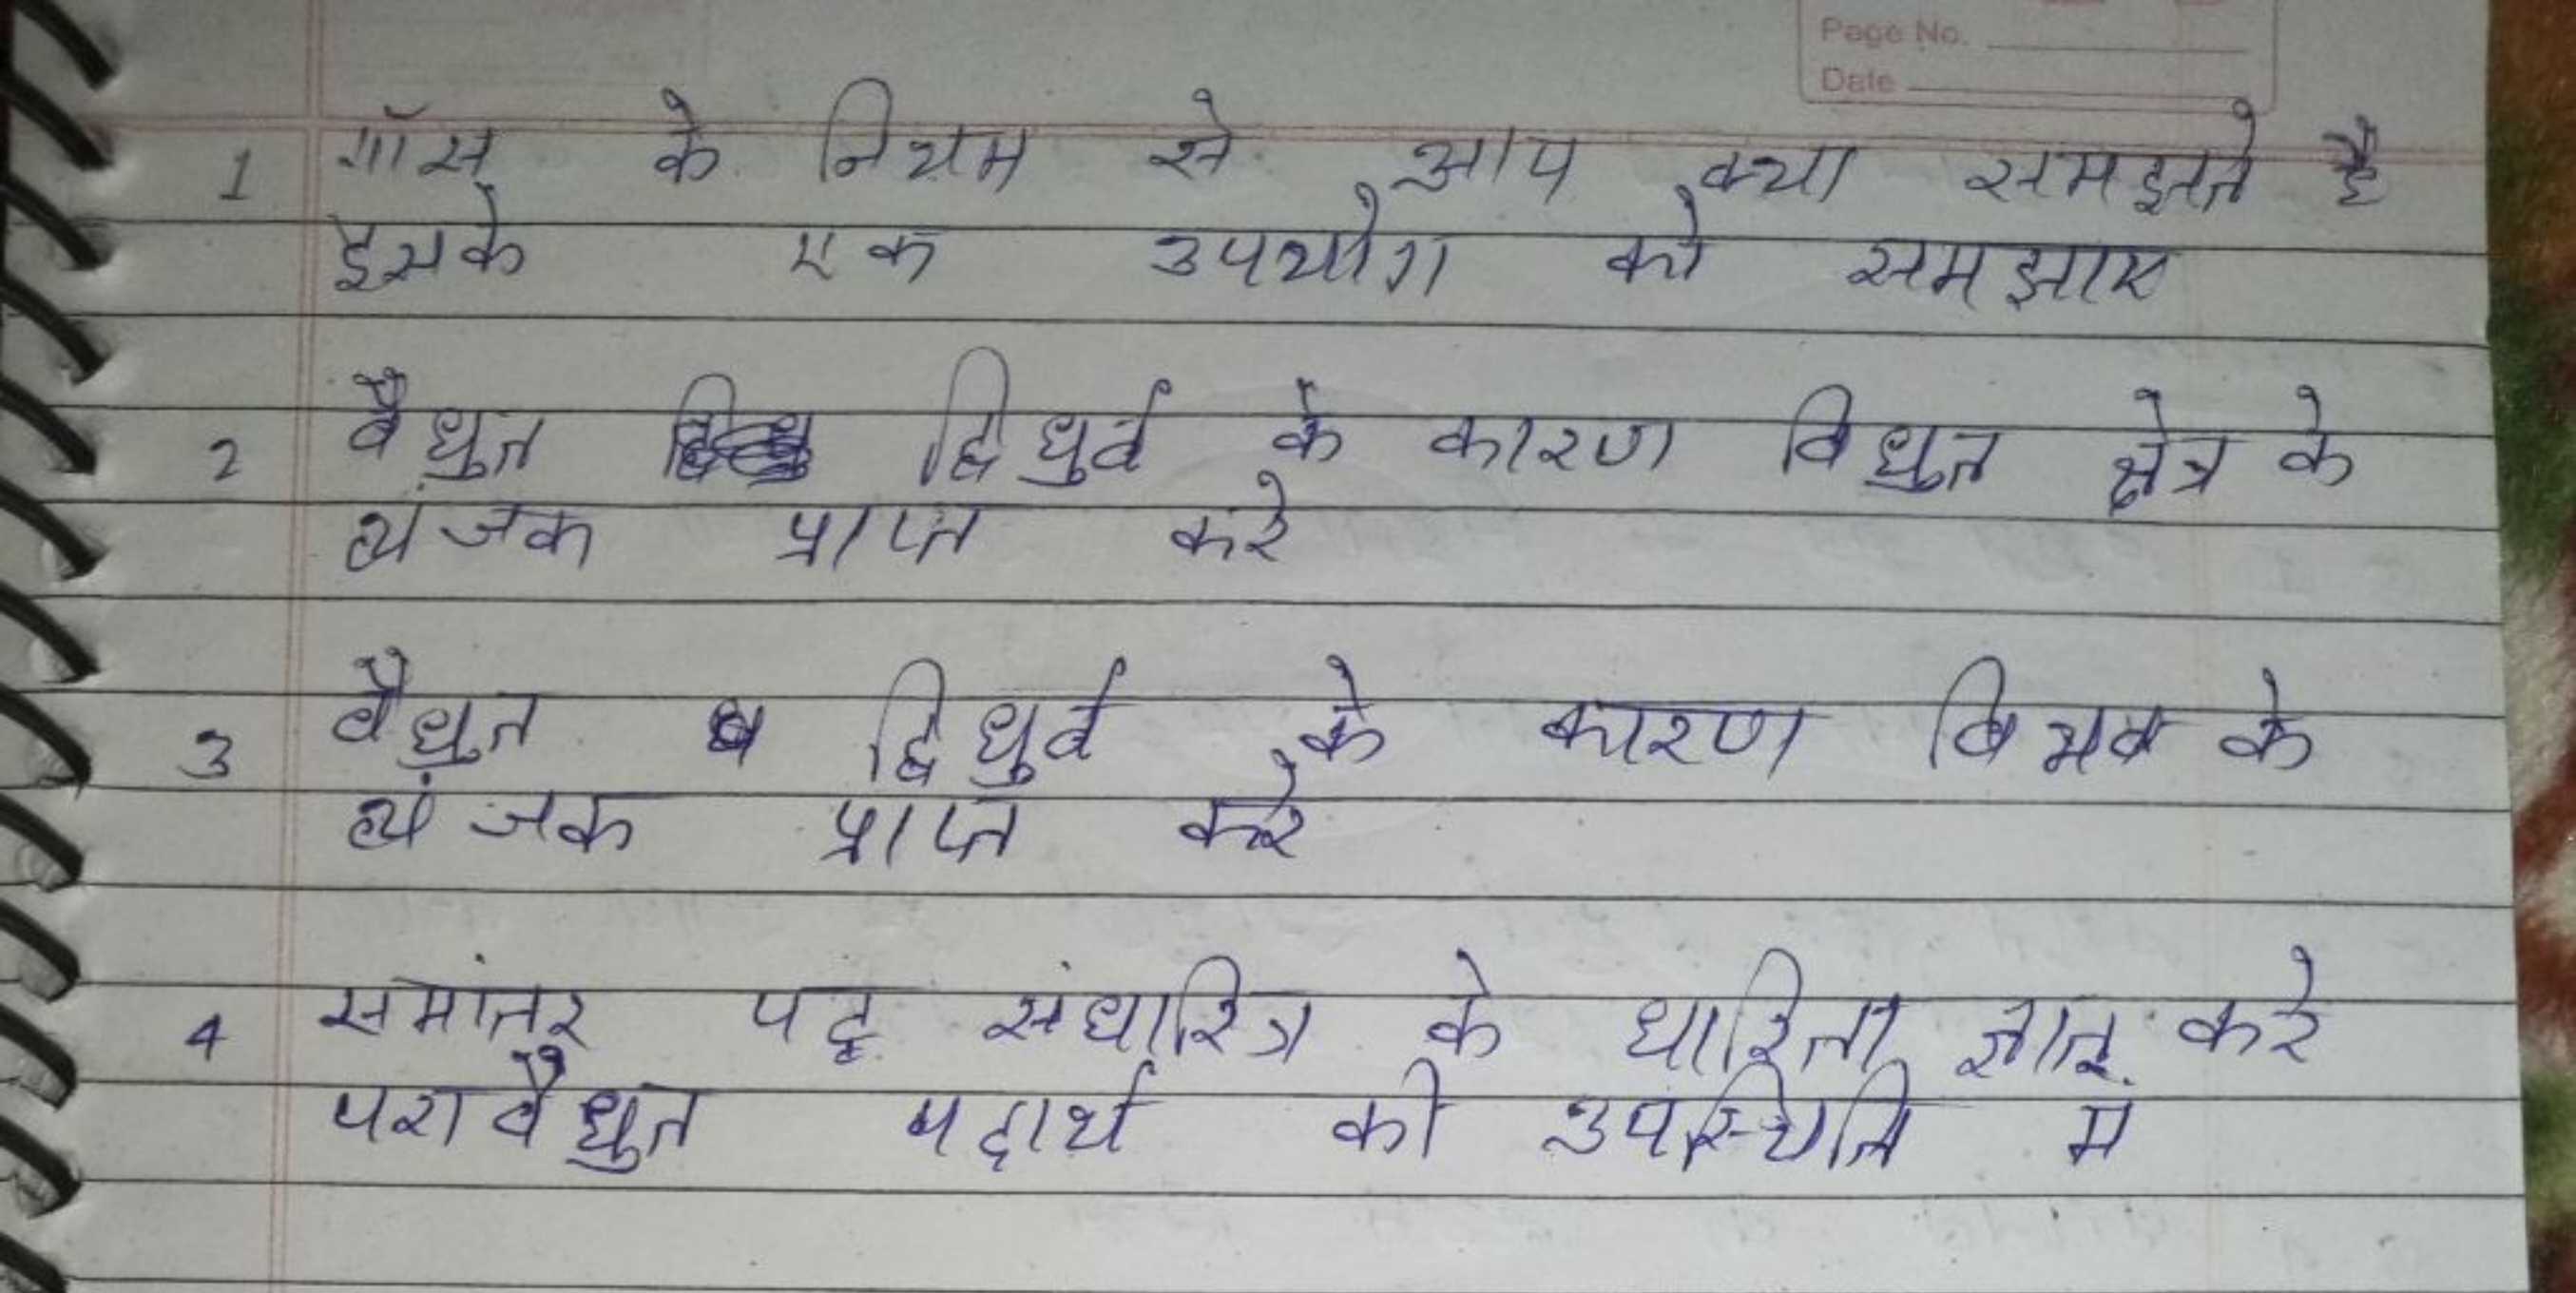 Page No.
Date
1 गॉस के नियम से आप क्या समझते है
इसके एक उपयोग को समझाए
2 वैधुत द्विधुर्व के कारण विधुत क्षेत्र के
व्यंजक प्राप्त करे
3 वैधुत द्विधुर्व के कारण विभव के
व्यंजक प्राप्त करे
4 समांतर पट्ट संधारित्र के धारिता ज्ञात करे
परावैधुत पदार्थ की उपस्थिति में